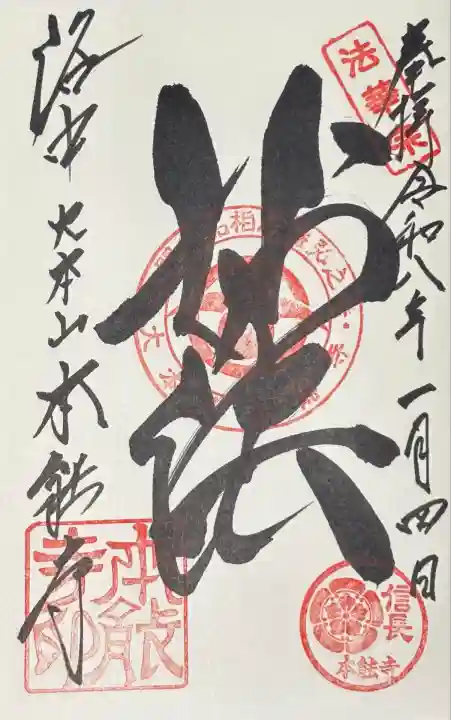 法華宗
奉拝 令和八年一月四日
妙法
洛中 大本山 本能寺
信長
本能寺
本能寺印